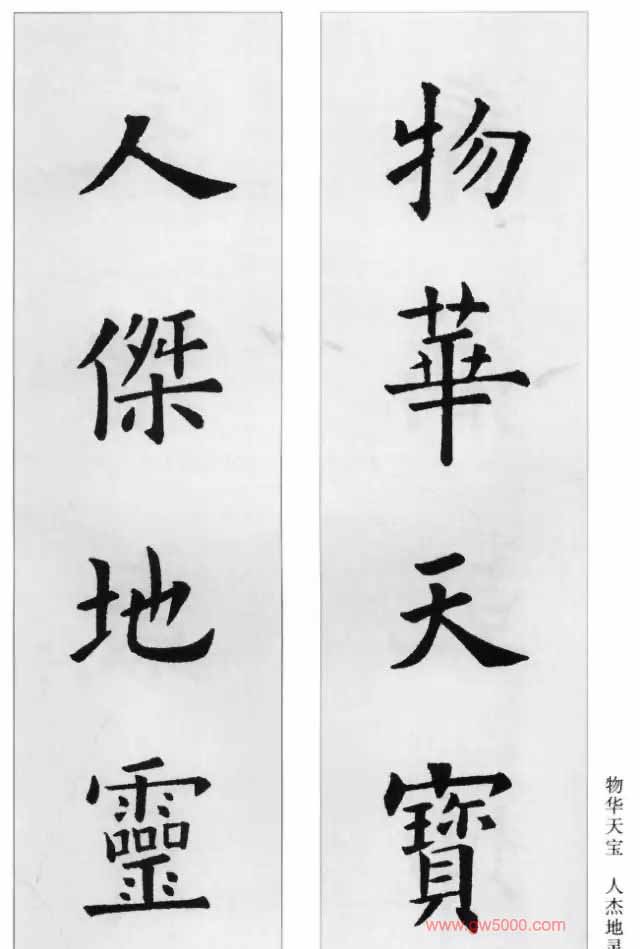 物華天寶
人傑地靈
物华天宝 人杰地灵
www.gw5000.com